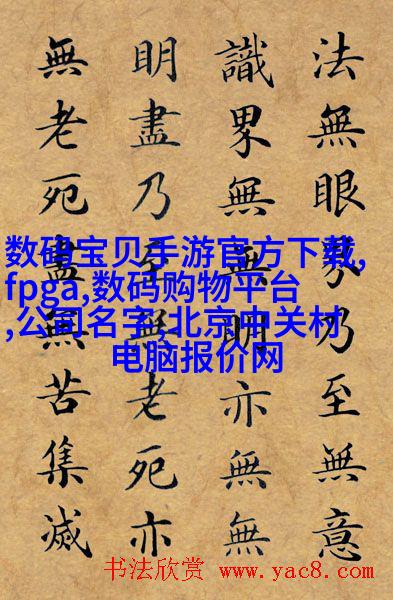 法無眼界乃至無意
識界無無明亦無無
明盡乃至無老死亦
無老死盡無苦集滅
数码宝贝手游官方下载,
fpga,数码购物平台
,公司名字,北京中关村
电脑报价网
书法欣赏 http://www.yac8.com